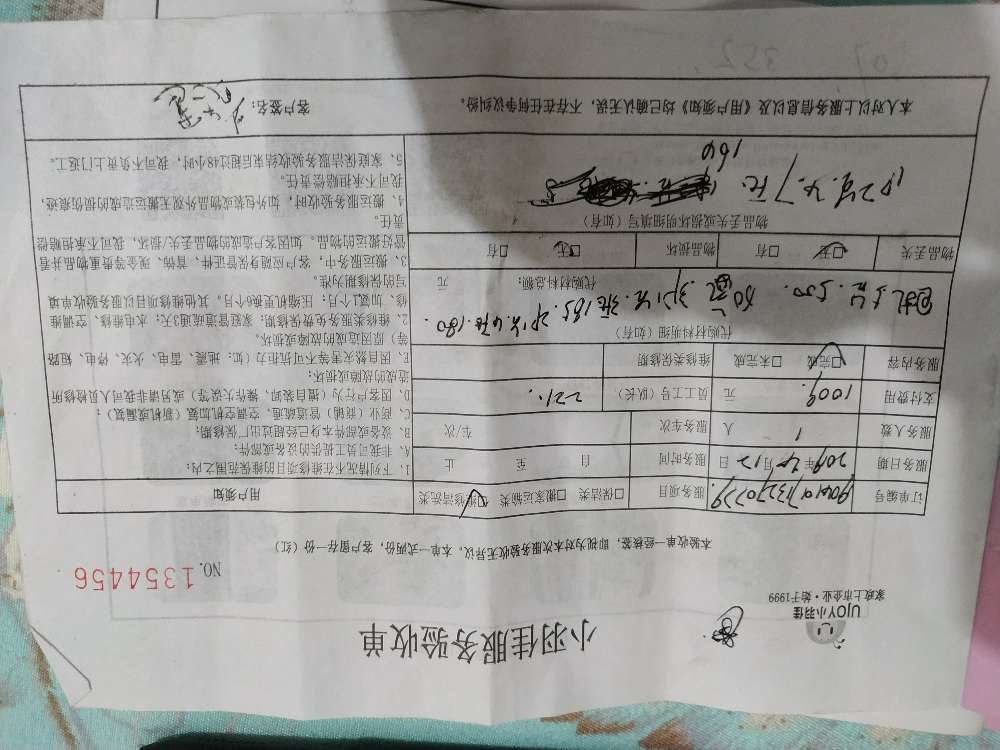 小羽佳服务验收单
UJOY小羽佳
家政上市企业·始于1999
NO.1354456
本验收单一经核签，即视为对本次服务验收无异议，本单一式两份，客户留存一份（红）
订单编号
服务项目 □保洁类 □搬家运输类 □维修清洗类
用户须知
服务日期 年 月 日 服务时间 自 至 止
服务人数 1 人 服务车次 车/次
支付费用 1009. 元 员工工号（队长） 221.
服务内容 □完成 □未完成 维修类保修期
代购材料明细（如有）
代购材料总额： 元
物品丢失 □无 □有 物品损坏 □无 □有
物品丢失或损坏明细填写（如有）
1、下列情况不在维修项目的维保范围之内：
A、非我司员工提供的设备或部件；
B、设备或部件本身已经超过出厂保修期；
C、商业（商铺）管道疏通、空调空机加氟（新机或漏氟）；
D、因客户行为（擅自装卸、操作失误等）或另请非我司人员检修所
造成的故障或损坏；
E、因自然灾害等不可抗力（如：地震、雷电、火灾、停电、短路
等）原因造成的故障或损坏。
2、维修类服务免费保修期：家庭管道疏通3天；水电维修、空调维
修、加氟1个月；压缩机更换6个月。其他维修项目以服务验收单填
写的保修期为准。
3、搬运服务中，客户应随身保管证件、首饰、现金等贵重物品并看
管好搬运的物品。如因客户造成的物品丢失/损坏，我司不承担赔偿
责任。
4、搬运服务验收时，如外包装或物品外观无搬运造成的损伤痕迹，
我司不承担赔偿责任。
5、家庭保洁服务验收结束后超过48小时，我司不负责上门返工。
本人对以上服务信息以及《用户须知》均已确认无误，不存在任何争议纠纷。
客户签名：